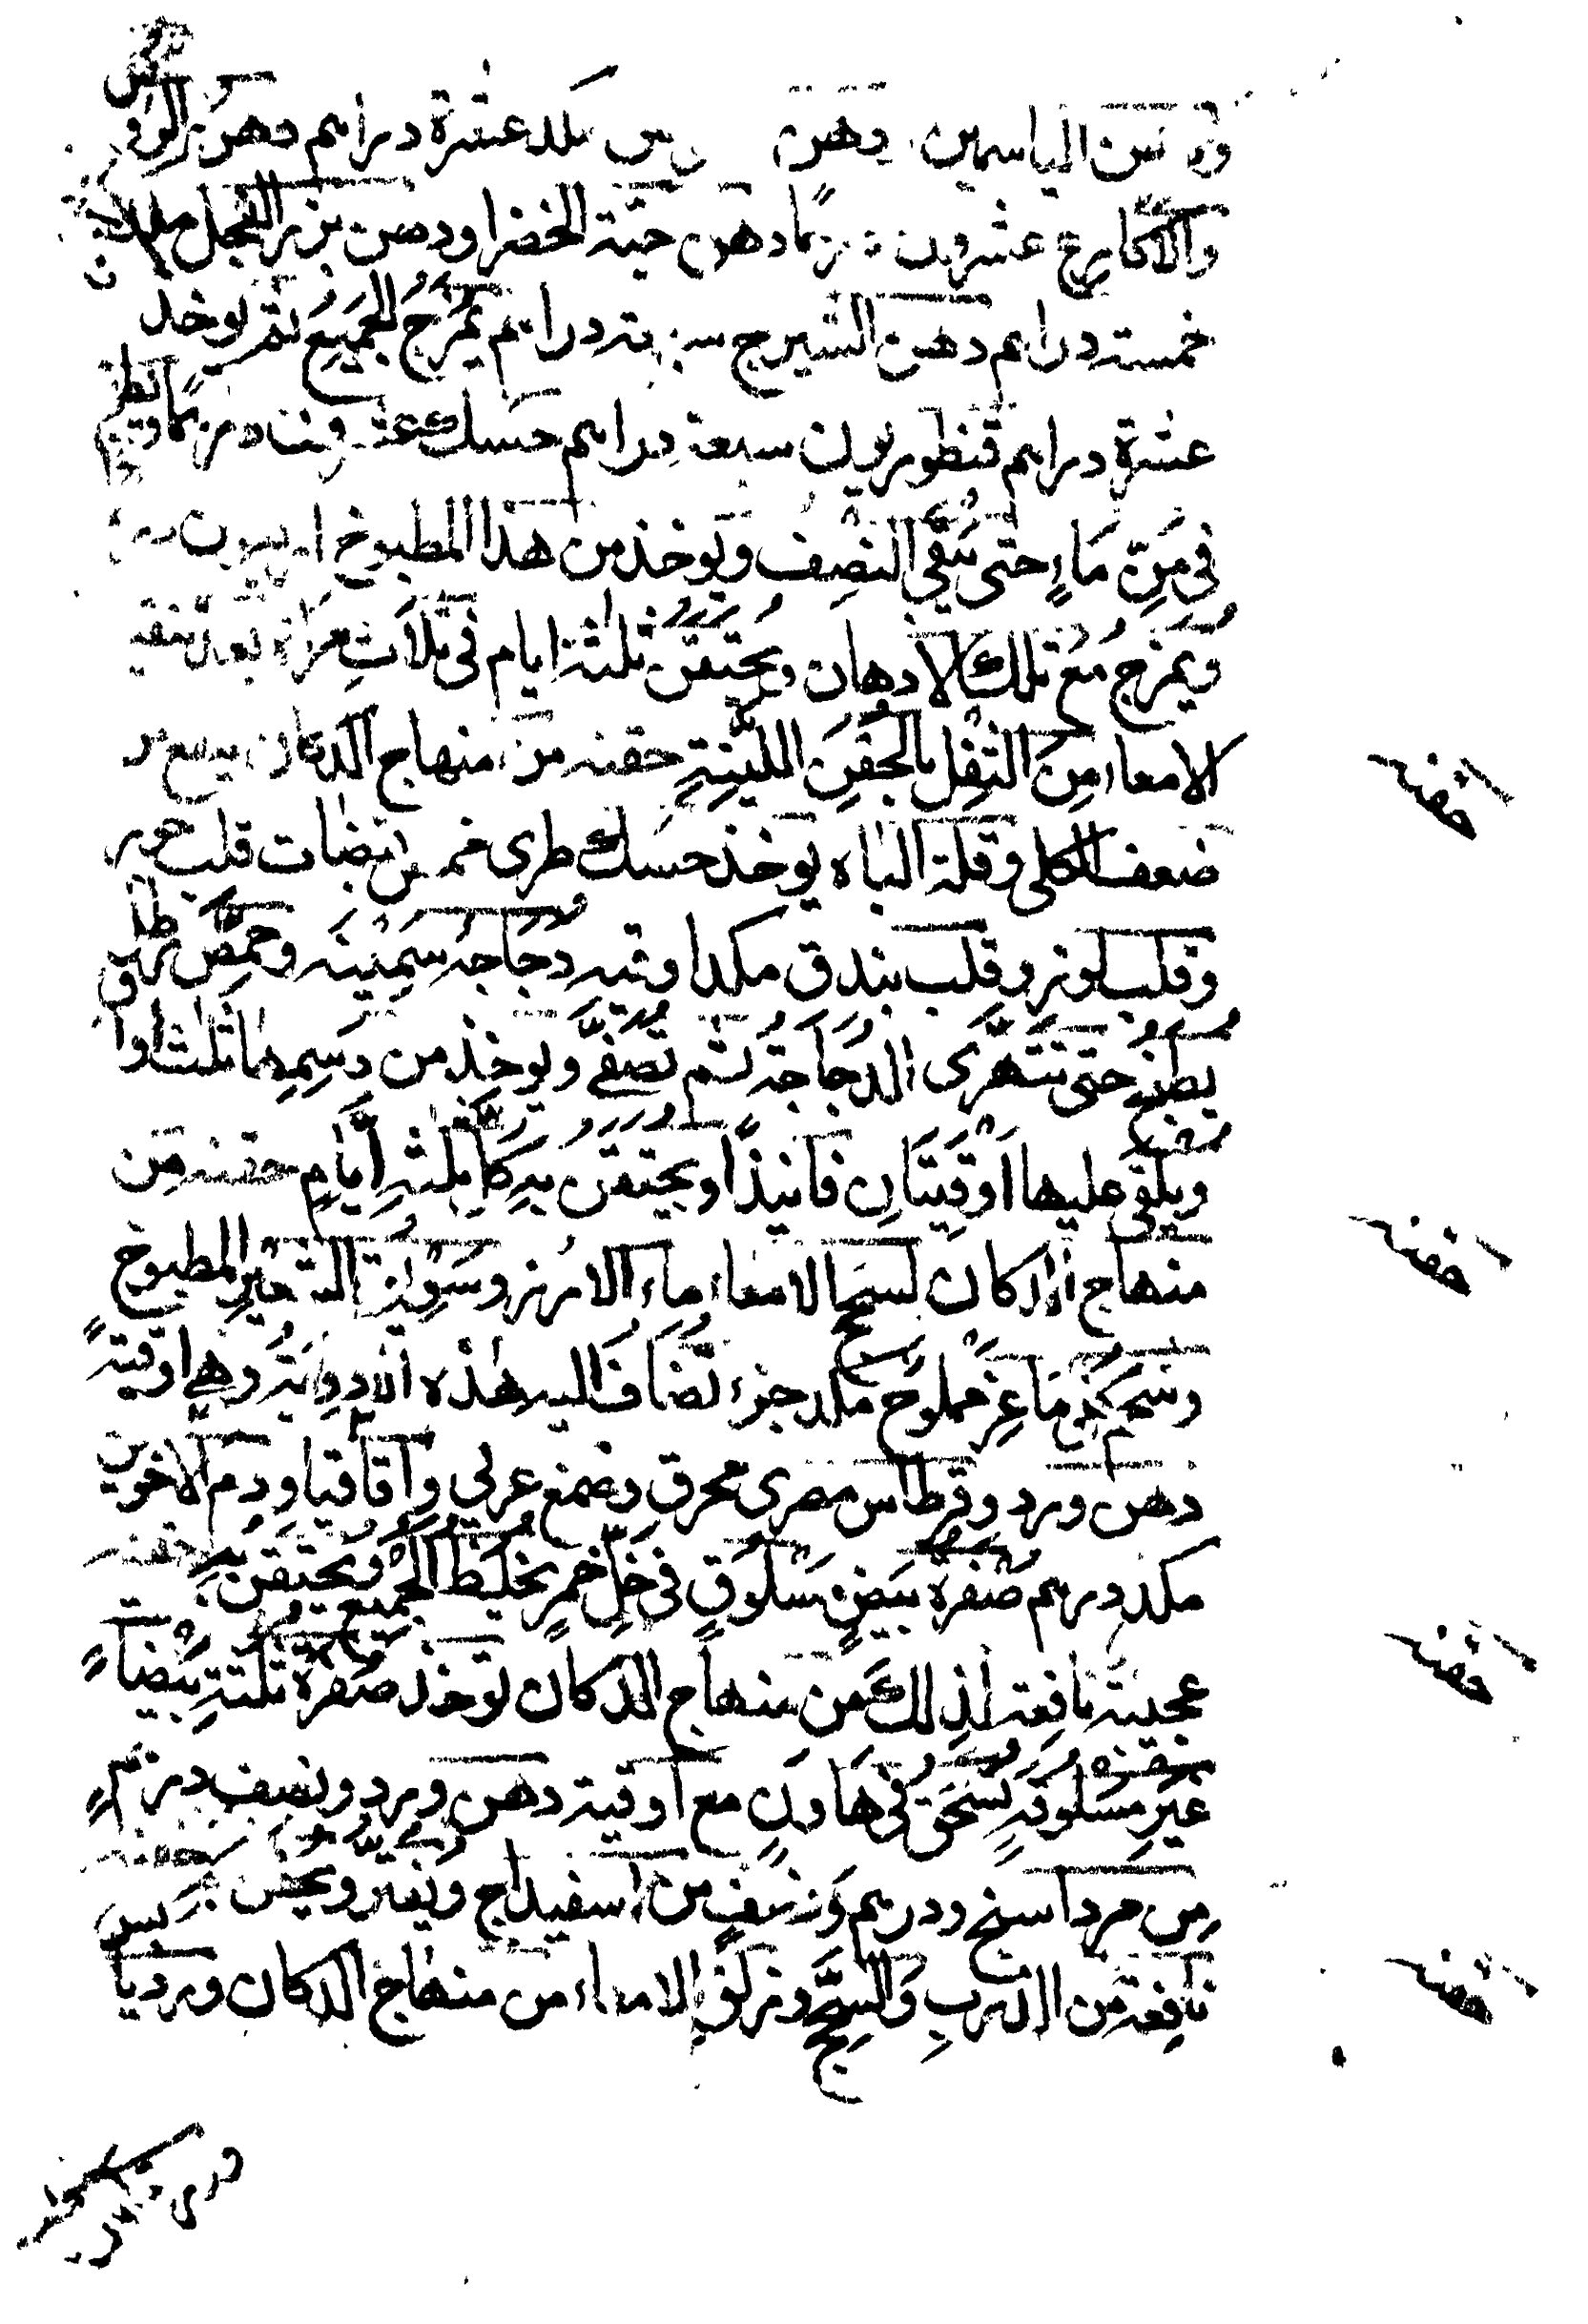 ودهن الياسمين ودهن مكد عشرة دراهم دهن
والاكارع عشرون درهما دهن حبة الخضرا ودهن بزر الفجل مكد
خمسة دراهم دهن الشيرج سبعة دراهم يُمزَجُ الجميعُ ثم يوخذ
عشرة دراهم قنطوريون سبعة دراهم حسك عشرون درهما ويطبخ
فى مَنِّ مَاءٍ حتى يَبْقى النصف ويوخذ من هذا المطبوخ
ويُمزج مع تلك الادهان ويُحتَقَن ثلثة ايام فى ثلاث مرات بعد تنقية
الامعاء مِنَ الثفل بالحُقَنِ اللَّيِّنَةِ حقنه من منهاج الدكان ينفع من
ضعف الكلى وقلة الباه يوخذ حسك طرى خمس قبضات قلب جوز
وقلب لوز وقلب بندق مكد اوقيه دُجَاجَه سَمِيْنَه وحِمَّص
يُطْبَخُ حتى تتهَرَّى الدجَاجَةُ ثم تُصَفَّى ويوخذ من دَسِمِهَا ثلث اواق
ويلقى عليها اَوْقِيَتَانِ فانيذًا ويحتقن به ثلثةِ ايَّامٍ حقنه مِن
منهاج الدكان لسحج الامعاء ماء الارز وسَوِيْق الشعير المطبوخ
وشحم مَاعِز مملوح مكد جزء تُضَافُ اليه هذه الادوِيَةُ وهي اوقيةً
دهن ورد وقرطاس مصرى محرق وصمغ عربي واقاقيا ودم الاخوين
مكد درهم صُفْرة بَيضٍ مَسْلُوقٍ فى خَلِّ خَمرٍ يُخْلَطُ الجميع ويُحتَقَنُ بهِ حقنه
عجيبة نافِعة لذلك مِن منهاج الدكان يوخذ صُفرة ثلثةِ بَيْضَاتٍ
غَيْرِ مَسْلُوقَةٍ تُسْحَقُ فى هَاوَنٍ مع اوقية دهن ورد ونصف درهم
مِن مرداسنج ودرهم ونِصفٍ من اسفيداج ويُفتَّر ويُحقن به حقنه
نافِعة من الذرب والسَّحج وزلق الامعاء من منهاج الدكان ورد يا
حقنه
حقنه
حقنه
حقنه